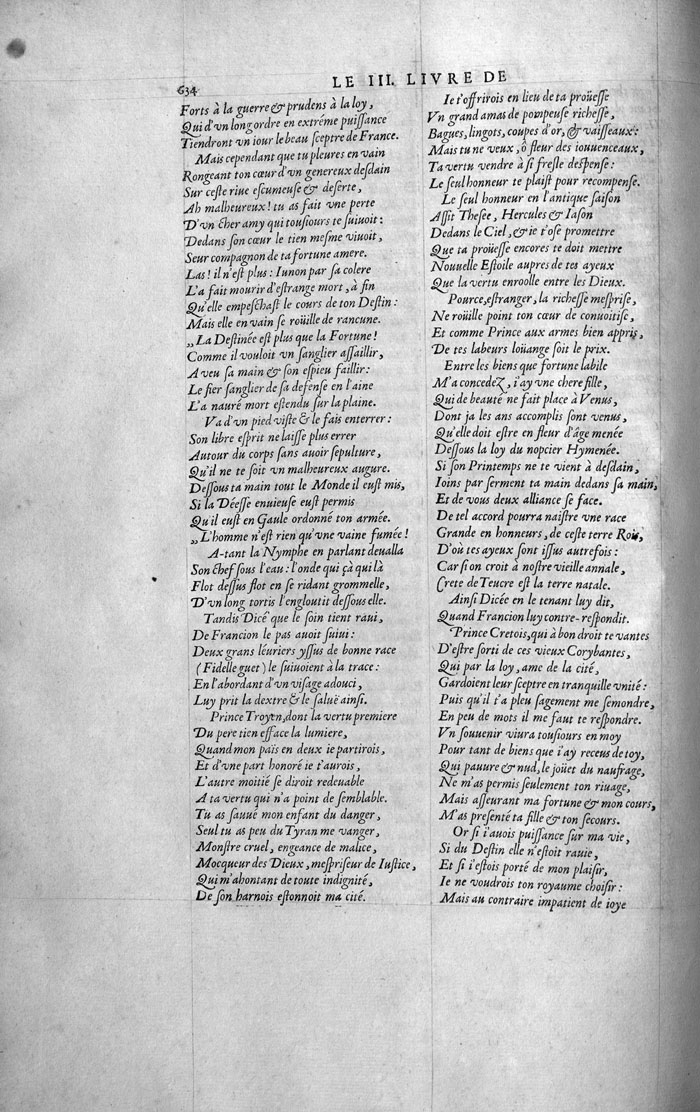 634
LE III. LIVRE DE
Forts à la guerre & prudens à la loy,
Qui d'vn long ordre en extréme puissance
Tiendront vn iour le beau sceptre de France.
Mais cependant que tu pleures en vain
Rongeant ton cœur d'vn genereux desdain
Sur ceste riue escumeuse & deserte,
Ah malheureux! tu as fait vne perte
D'vn cher amy qui tousiours te suiuoit:
Dedans son cœur le tien mesme viuoit,
Seur compagnon de ta fortune amere.
Las! il n'est plus: Iunon par sa colere
L'a fait mourir d'estrange mort, à fin
Qu'elle empeschast le cours de ton Destin:
Mais elle en vain se roüille de rancune.
„La Destinée est plus que la Fortune!
Comme il vouloit vn sanglier assaillir,
A veu sa main & son espieu faillir:
Le fier sanglier de sa defense en l'aine
L'a nauré mort estendu sur la plaine.
Va d'vn pied viste & le fais enterrer:
Son libre esprit ne laisse plus errer
Autour du corps sans auoir sepulture,
Qu'il ne te soit vn malheureux augure.
Dessous ta main tout le Monde il eust mis,
Si la Déesse enuieuse eust permis
Qu'il eust en Gaule ordonné ton armée.
„L'homme n'est rien qu'vne vaine fumée!
A-tant la Nymphe en parlant deualla
Son chef sous l'eau: l'onde qui çà qui là
Flot dessus flot en se ridant grommelle,
D'vn long tortis l'engloutit dessous elle.
Tandis Dicé que le soin tient raui,
De Francion le pas auoit suiui:
Deux grans léuriers yssus de bonne race
(Fidelle guet) le suiuoient à la trace:
En l'abordant d'vn visage adouci,
Luy prit la dextre & le saluë ainsi.
Prince Troyen, dont la vertu premiere
Du pere tien efface la lumiere,
Quand mon païs en deux ie partirois,
Et d'vne part honoré ie t'aurois,
L'autre moitié se diroit redeuable
A ta vertu qui n'a point de semblable.
Tu as sauué mon enfant du danger,
Seul tu as peu du Tyran me vanger,
Monstre cruel, engeance de malice,
Mocqueur des Dieux, mespriseur de Iustice,
Qui m'ahontant de toute indignité,
De son harnois estonnoit ma cité.
Ie t'offrirois en lieu de ta proüesse
Vn grand amas de pompeuse richesse,
Bagues, lingots, coupes d'or, & vaisseaux:
Mais tu ne veux, ô fleur des iouuenceaux,
Ta vertu vendre à si fresle despense:
Le seul honneur te plaist pour recompense.
Le seul honneur en l'antique saison
Assit Thesee, Hercules & Iason
Dedans le Ciel, & ie t'ose promettre
Que ta proüesse encores te doit mettre
Nouuelle Estoile aupres de tes ayeux
Que la vertu enroolle entre les Dieux.
Pource, estranger, la richesse mesprise,
Ne roüille point ton cœur de conuoitise,
Et comme Prince aux armes bien appris,
De tes labeurs loüange soit le prix.
Entre les biens que fortune labile
M'a concedez, i'ay vne chere fille,
Qui de beauté ne fait place à Venus,
Dont ja les ans accomplis sont venus,
Qu'elle doit estre en fleur d'âge menée
Dessous la loy du nopcier Hymenée.
Si son Printemps ne te vient à desdain,
Ioins par serment ta main dedans sa main,
Et de vous deux alliance se face.
De tel accord pourra naistre vne race
Grande en honneurs, de ceste terre Rois,
D'où tes ayeux sont issus autrefois:
Car si on croit à nostre vieille annale,
Crete de Teucre est la terre natale.
Ainsi Dicée en le tenant luy dit,
Quand Francion luy contre-respondit.
Prince Cretois, qui à bon droit te vantes
D'estre sorti de ces vieux Corybantes,
Qui par la loy, ame de la cité,
Gardoient leur sceptre en tranquille vnité:
Puis qu'il t'a pleu sagement me semondre,
En peu de mots il me faut te respondre.
Vn souuenir viura tousiours en moy
Pour tant de biens que i'ay receus de toy,
Qui pauure & nud, le joüet du naufrage,
Ne m'as permis seulement ton riuage,
Mais asseurant ma fortune & mon cours,
M'as presenté ta fille & ton secours.
Or si i'auois puissance sur ma vie,
Si du Destin elle n'estoit rauie,
Et si i'estois porté de mon plaisir,
Ie ne voudrois ton royaume choisir:
Mais au contraire impatient de ioye